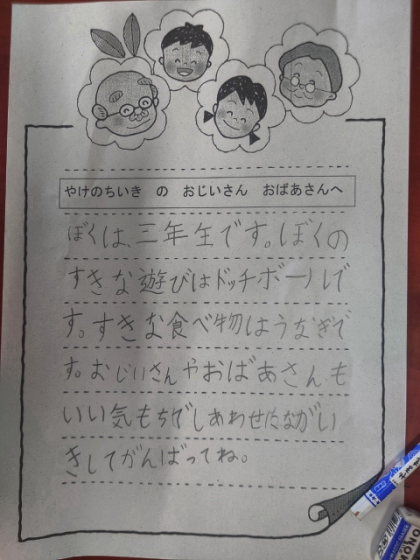 やけのちいき の おじいさん おばあさんへ
ぼくは、三年生です。ぼくの
すきな遊びはドッチボールで
す。すきな食べ物はうなぎで
す。おじいさんやおばあさんも
いい気もちでしあわせにながい
きしてがんばってね。